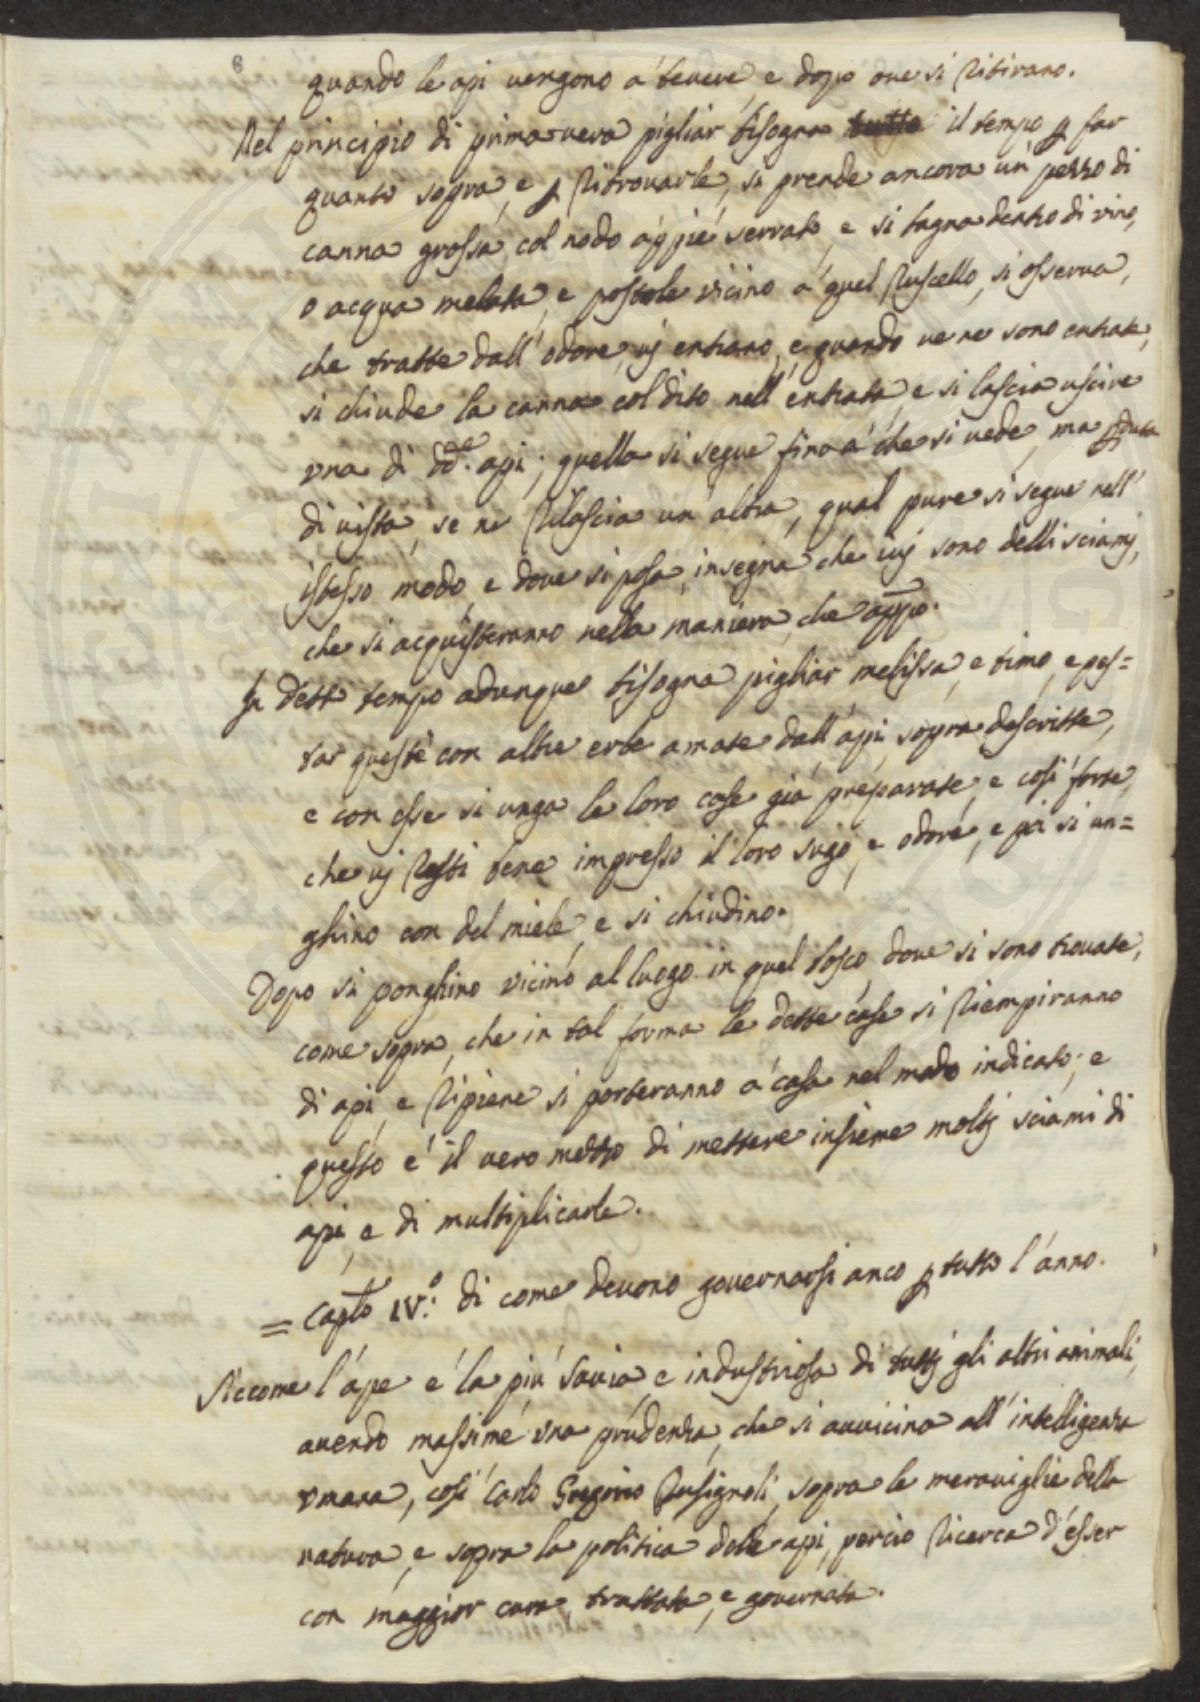 6
quando le api vengono a' bevere, e dopo ove si ritirano.
Nel principio di primavera pigliar bisogna tutto il tempo p far
quanto sopra, e p ritrovarle, si prende ancora un' pezzo di
canna grossa, col nodo appie' serrato, e si bagna dentro di vino,
o acqua melata, e postole vicino a' quel ruscello, si osserva,
che tratte dall' odore, vj entrano, e quando ve ne sono entrate,
si chiude la canna col dito nell' entrata, e si lascia uscire
vna di dd.e api; quella si segue fino a' che si vede, ma pduta
di vista, se ne rilascia un' altra, qual pure si segue nell'
istesso modo, e dove si posa, insegna che ivj sono delli sciamj,
che si acquisteranno nella maniera, che app.o.
In detto tempo adunque bisogna pigliar melissa, e timo, e pes=
tar queste con altre erbe amate dall' api, sopra descritte,
e con esse si unga le loro case gia' preparate, e cosi' forte,
che vj resti bene impresso il loro sugo, e odore, e poi si un=
ghino con del miele, e si chiudino.
Dopo si ponghino vicino al luogo in quel bosco, dove si sono trovate,
come sopra, che in tal forma le dette case si riempiranno
di api, e ripiene si porteranno a' casa nel modo indicato; e
questo e' il vero mezzo di mettere insieme moltj sciami di
api, e di multiplicarle.
= Capto IV.o: di come devono governarsi anco p tutto l'anno.
Siccome l'ape e' la piu' savia, e industriosa di tuttj gli altri animali,
avendo massime vna prudenza, che si avvicina all' intelligenza
vmana, cosi' Carlo Gregorio Rusignoli, sopra le meraviglie della
natura, e sopra la politica delle api, percio ricerca d'esser
con maggior cura, trattata, e governata.